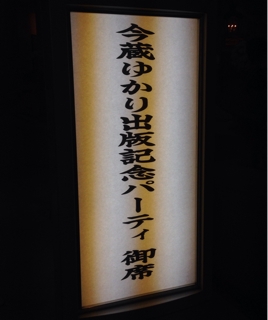 今蔵ゆかり出版記念パーティ 御席